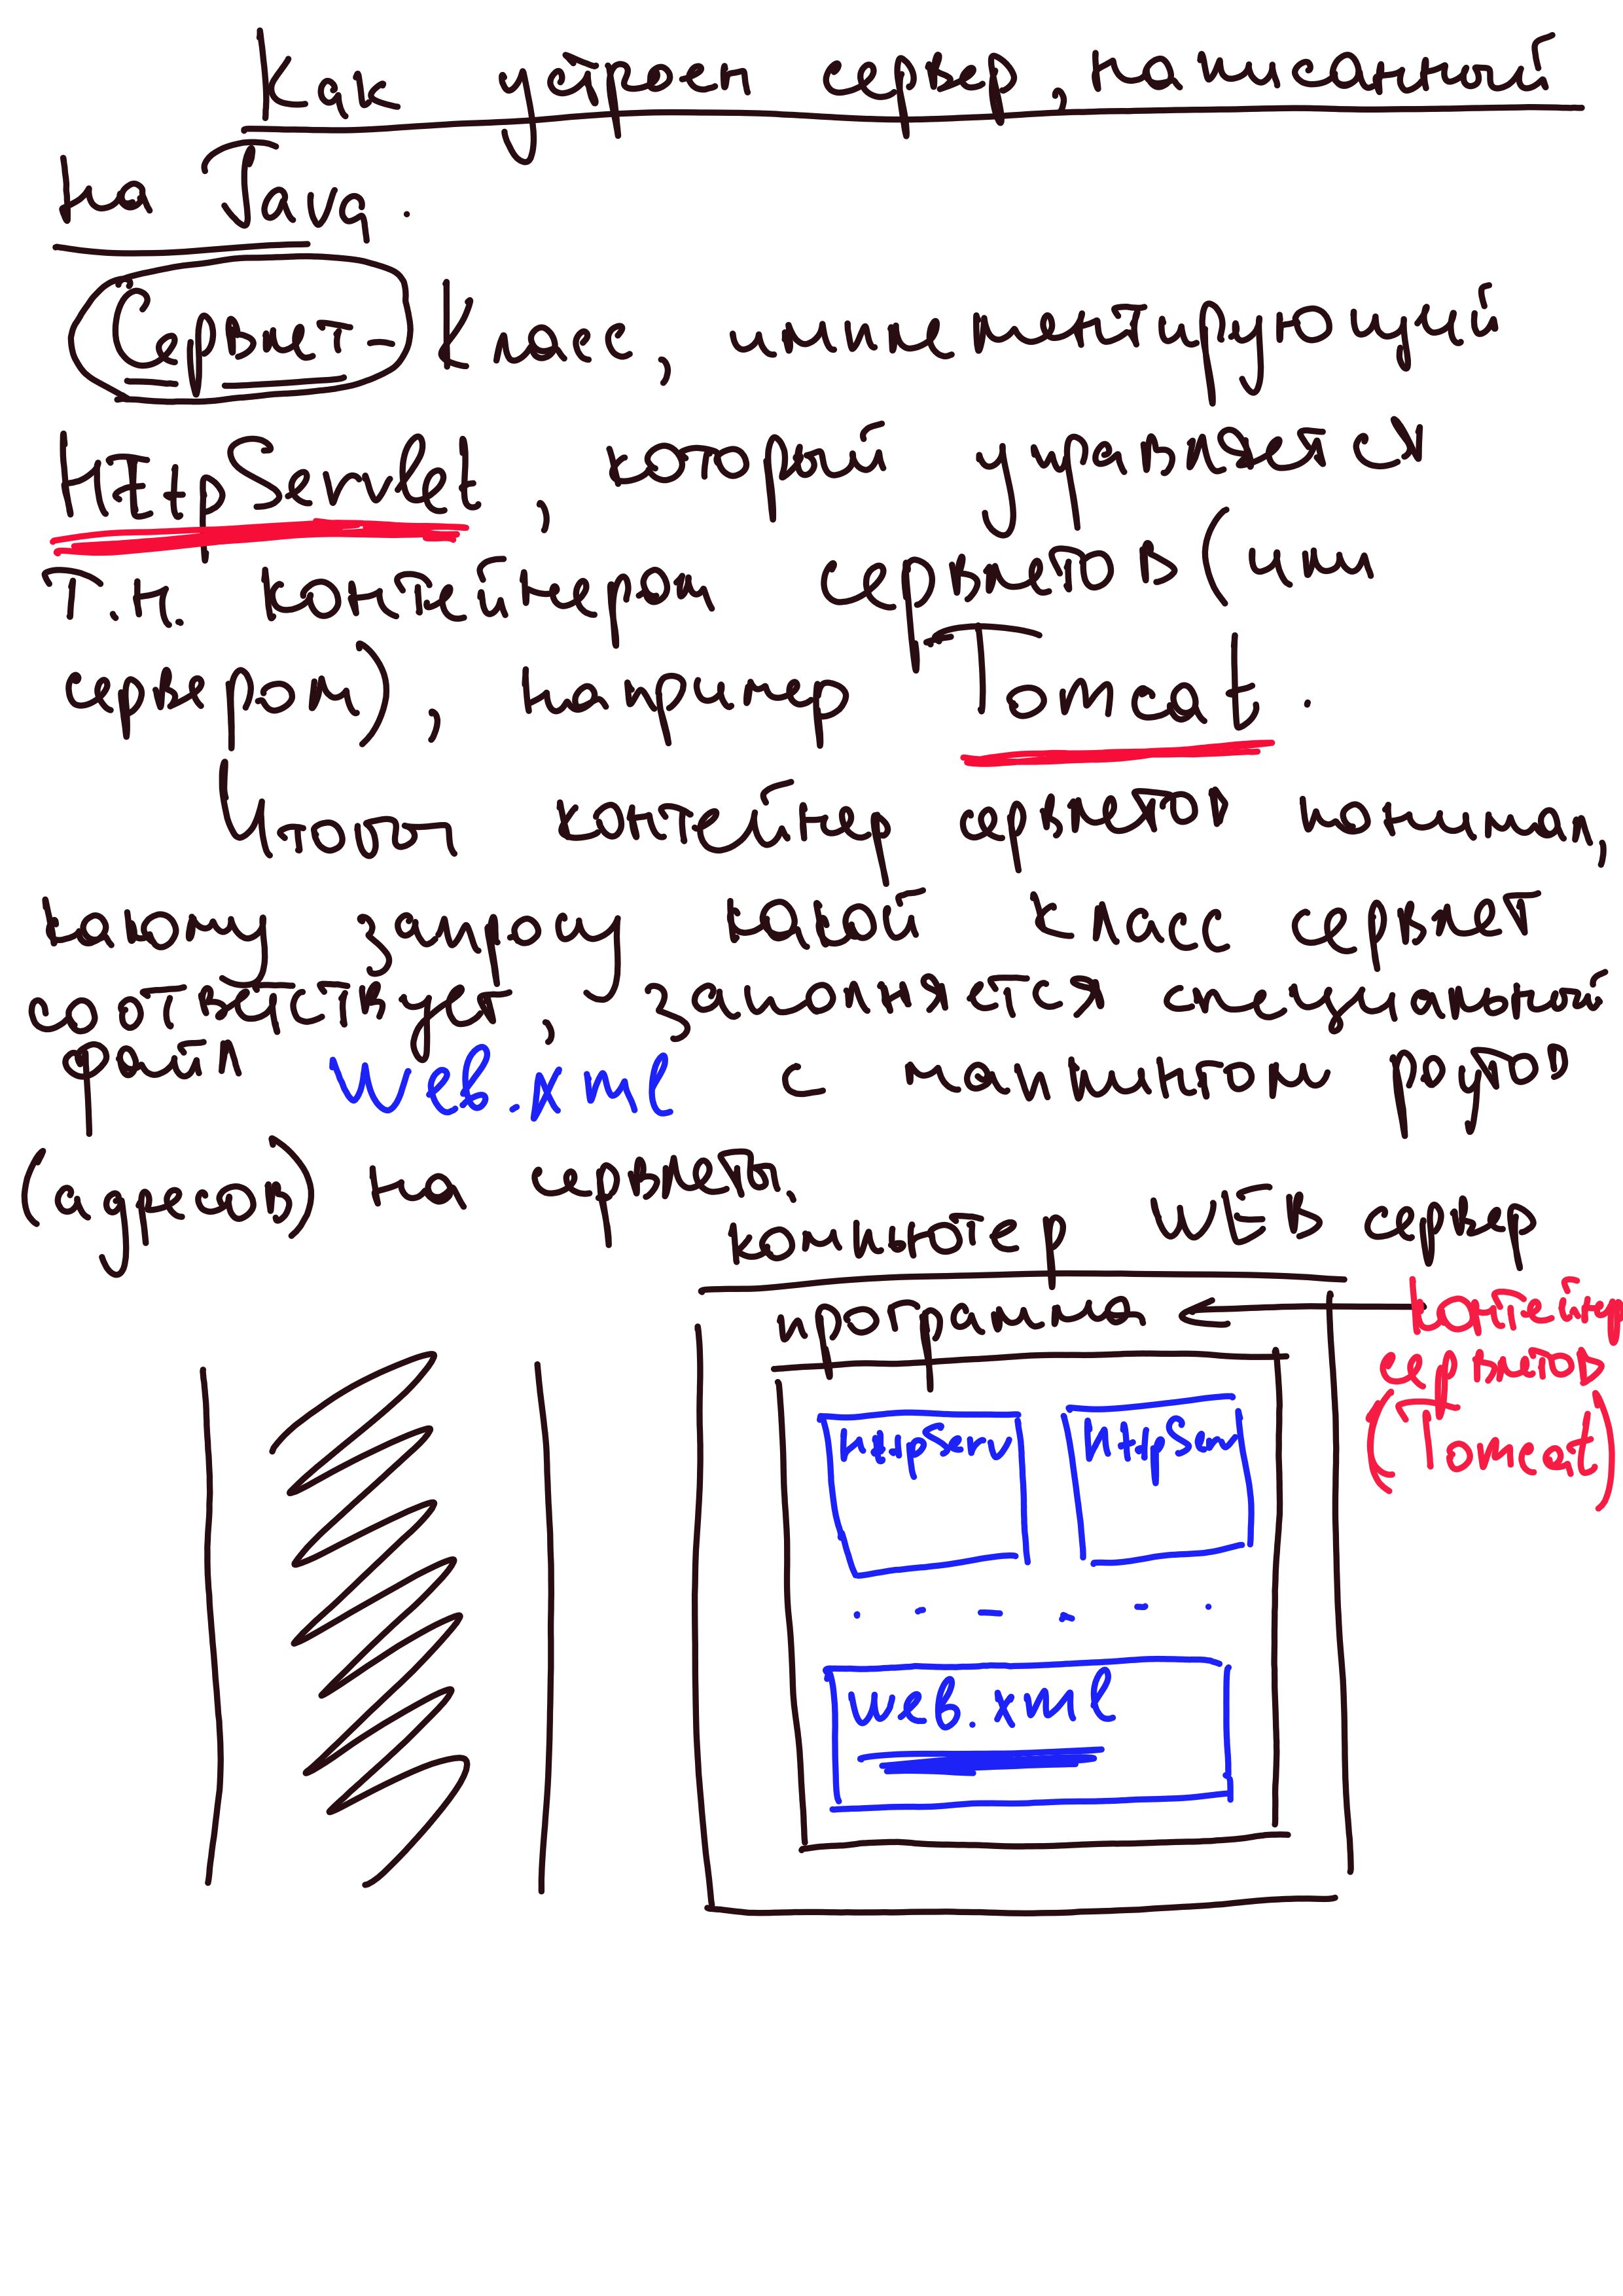 Как устроен сервер, написанный
на Java.
Сервлет - Класс, имплементирующий
HttpServlet, который управляется
т.н. контейнером сервлетов (или
сервером), например Tomcat.
Чтобы контейнер сервлетов понимал,
какому запросу какой класс сервлет
соответствует, заполняется специальный
файл web.xml с маппингом роутов
(адресов) на сервлеты.
компьютер WEB сервер
программа
контейнер
сервлетов
(Tomcat)
HttpServ HttpServ
web.xml